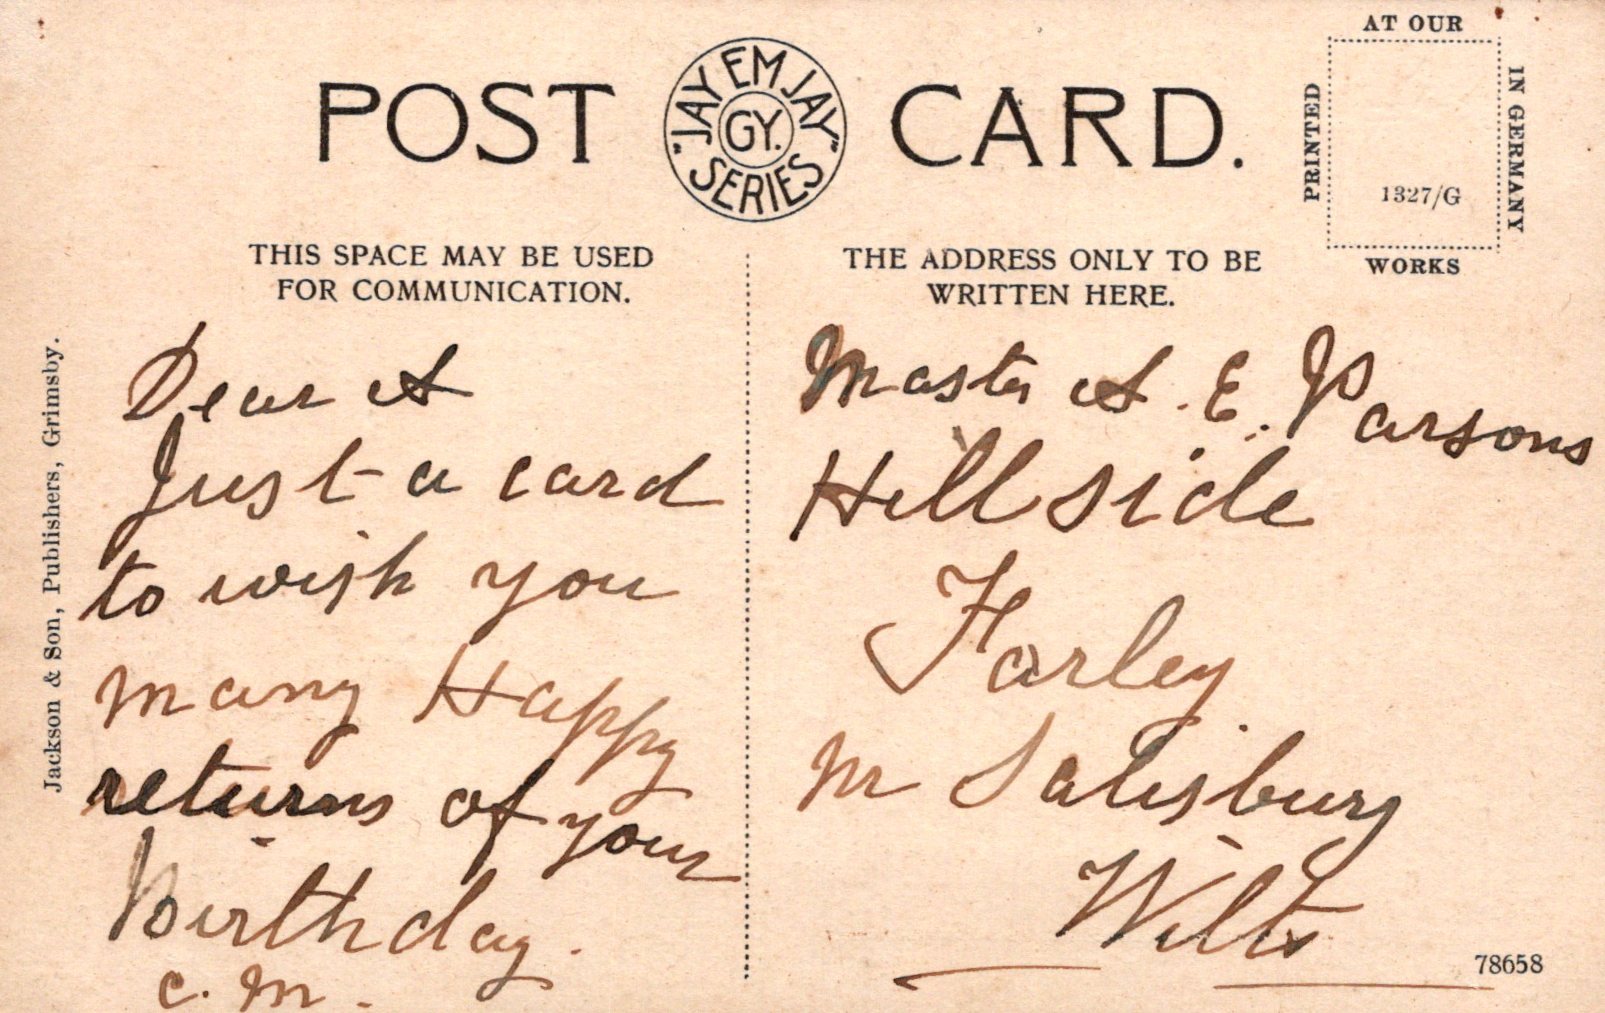 POST CARD.
"JAY EM JAY" SERIES
GY.
AT OUR
PRINTED
IN GERMANY
1327/G
WORKS
THIS SPACE MAY BE USED
FOR COMMUNICATION.
THE ADDRESS ONLY TO BE
WRITTEN HERE.
Jackson & Son, Publishers, Grimsby.
Dear A
Just a card
to wish you
many Happy
returns of your
Birthday.
C. M.
Master A. E. Parsons
Hillside
Farley
Nr Salisbury
Wilts
78658